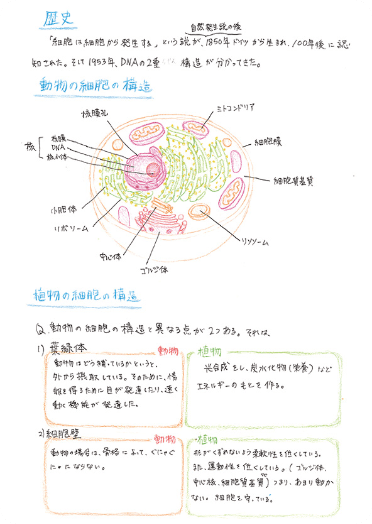 歴史
自然発生説の後
「細胞は細胞から発生する」という説が、1850年ドイツから生まれ、100年後に認
知された。そして1953年、DNAの2重 構造が分かってきた。
動物の細胞の構造
核膜孔
ミトコンドリア
核
核膜
DNA
核小体
細胞膜
細胞質基質
小胞体
リボソーム
中心体
ゴルジ体
リソソーム
植物の細胞の構造
Q. 動物の細胞の構造と異なる点が2つある。それは、
1) 葉緑体
動物
動物はどう補っているかというと、
外から摂取している。そのために、情
報を得るために目が発達したり、速く
動く機能が発達した。
植物
光合成をし、炭水化物(栄養)など
エネルギーのもとを作る。
2) 細胞壁
動物
動物の場合は、骨格によって、ぐにゃぐ
にゃにならない。
植物
形がくずれないよう柔軟性を低くしている。
また、運動性も低くしている。(ゴルジ体、
中心体、細胞質基質)つまり、あまり動か
ない。細胞を守っている。